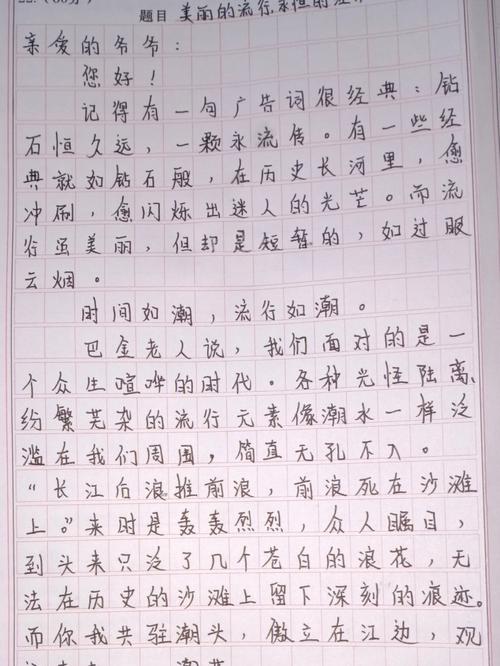 22.（60分）
题目 美丽的流行,永恒的经典
亲爱的爷爷：
您好！
记得有一句广告词很经典：钻
石恒久远，一颗永流传。有一些经
典就如钻石般，在历史长河里，愈
冲刷，愈闪烁出迷人的光芒。而流
行虽美丽，但却是短暂的，如过眼
云烟。
时间如潮，流行如潮。
巴金老人说，我们面对的是一
个众生喧哗的时代。各种光怪陆离、
纷繁芜杂的流行元素像潮水一样泛
滥在我们周围，简直无孔不入。
“长江后浪推前浪，前浪死在沙滩
上。”来时是轰轰烈烈，众人瞩目，
到头来只泛了几个苍白的浪花，无
法在历史的沙滩上留下深刻的痕迹。
而你我共驻潮头，傲立在江边，观